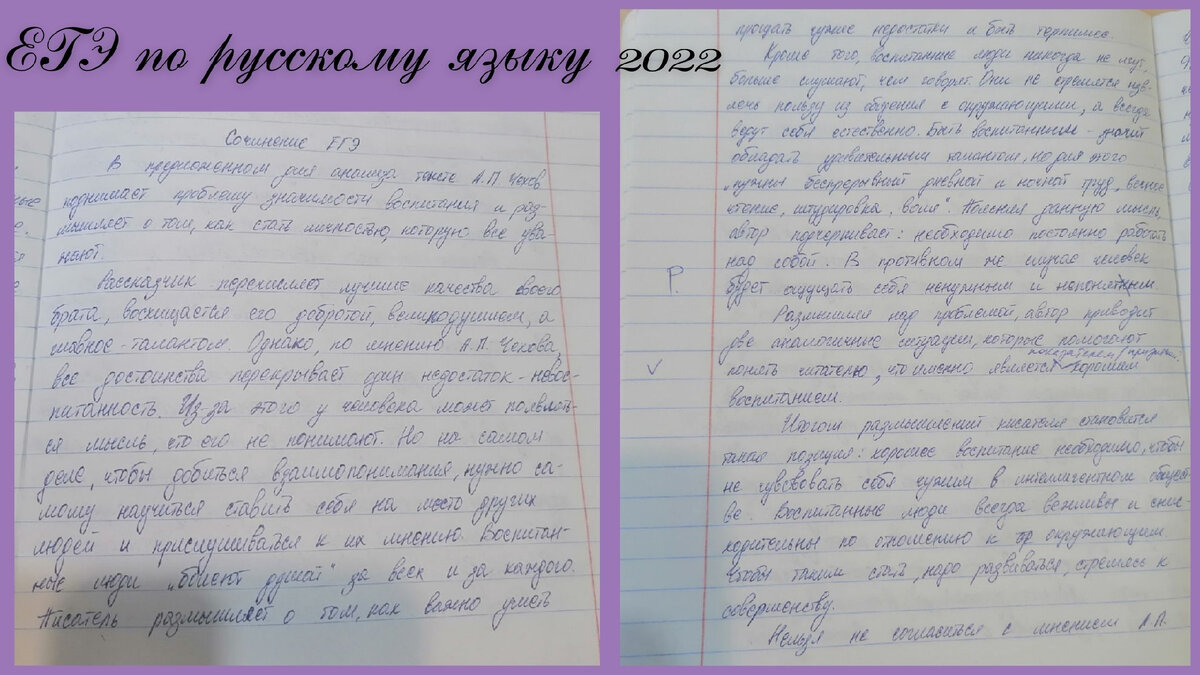 ЕГЭ по русскому языку 2022
Сочинение ЕГЭ
В предложенном для анализа тексте А.П. Чехов
поднимает проблему значимости воспитания и раз-
мышляет о том, как стать личностью, которую все ува-
жают.
Рассказчик перечисляет лучшие качества своего
брата, восхищается его добротой, великодушием, а
главное - талантом. Однако, по мнению А.П. Чехова,
все достоинства перекрывает один недостаток - невос-
питанность. Из-за этого у человека может появлять-
ся мысль, что его не понимают. Но на самом
деле, чтобы добиться взаимопонимания, нужно са-
мому научиться ставить себя на место других
людей и прислушиваться к их мнению. Воспитан-
ные люди „болеют душой" за всех и за каждого.
Писатель размышляет о том, как важно уметь
прощать чужие недостатки и быть терпимее.
Кроме того, воспитанные люди никогда не лгут,
больше слушают, чем говорят. Они не стремятся изв-
лечь пользу из общения с окружающими, а всегда
ведут себя естественно. Быть воспитанным - значит
обладать удивительным талантом, но для этого
„нужны беспрерывный дневной и ночной труд, вечное
чтение, штудировка, воля". Поясняя данную мысль,
автор подчеркивает: необходимо постоянно работать
над собой. В противном же случае человек
Р.
будет ощущать себя ненужным и непонятным
Размышляя над проблемой, автор приводит
две аналогичные ситуации, которые помогают
показателем/признаком
V
понять читателю, что именно является хорошим
воспитанием.
Итогом размышлений писателя становится
такая позиция: хорошее воспитание необходимо, чтобы
не чувсвовать себя чужим в интеллигентном общест-
ве. Воспитанные люди всегда вежливы и снис-
ходительны по отношению к окружающим.
Чтобы таким стать, надо развиваться, стремясь к
совершенству.
Нельзя не согласиться с мнением А.П.